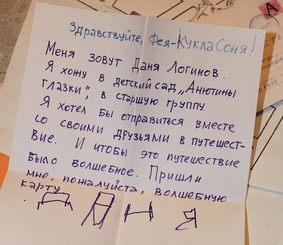 Здравствуйте, Фея-Кукла Соня!
Меня зовут Даня Логинов.
Я хожу в детский сад „Анютины
глазки", в старшую группу.
Я хотел бы отправиться вместе
со своими друзьями в путешест-
вие. И чтобы это путешествие
было волшебное. Пришли
мне, пожалуйста, волшебную
карту.
ДАНЯ